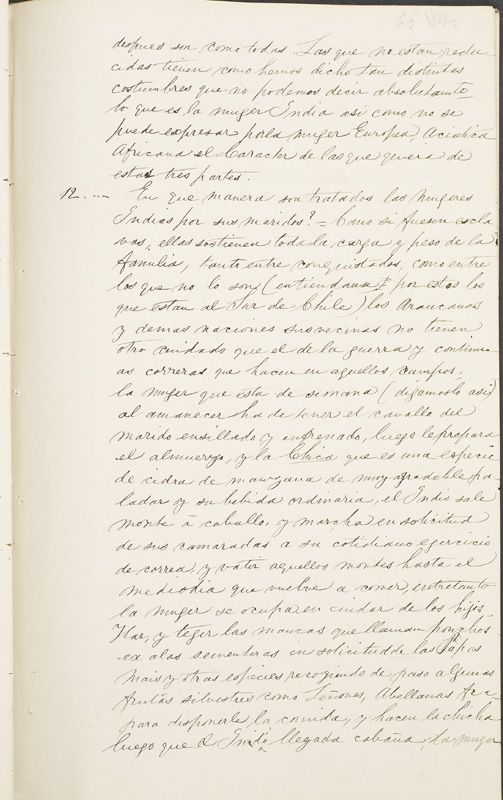 despues son como todas Las que no estan redu
cidas tienen como hemos dicho tan distintas
costumbres que no podemos decir absolutamte
lo que es la muger India asi como no se
puede expresar porla muger Europea, Aciatica
Africana el Caracter de las que quiera de
estas tres partes.
12.... En que manera son tratados las mugeres
Indias por sus maridos? = Como si fuesen escla
vas, ellas sostienen toda la carga y peso de la
familia, tanto entre conquistados, como entre
los que no lo son (entiendanse por estos los
que estan al Sur de Chile) los Araucanos
y demas naciones sus vecinas no tienen
otro cuidado que el de la guerra y continu
as correras que hacen en aquellos campos,
la muger que esta de semana (digamoslo asi)
al amanecer ha de tener el cavallo del
marido ensillado y enfrenado, luego le prepara
el almuerzo, y la Chica que es una especie
de cidra de manzana de muy agradable pa-
ladar y su bebida ordinaria, el Indio sale
monte à caballo, y marcha en solicitud
de sus camaradas a su cotidiano egercicio
de correa, y vatir aquellos montes hasta el
mediodia que vuelve a comer, entretanto
la muger se ocupa en cuidar de los hijos
Hilar, y teger las mantas que llaman ponchos
ex alas sementeras en solicitud de las Papas
Mais y otras especies recogiendo de paso algunas
frutas silvestres como Avellanas
para disponerle la comida, y hacen la chicha
luego que el Indio llegada cabaña, la muger